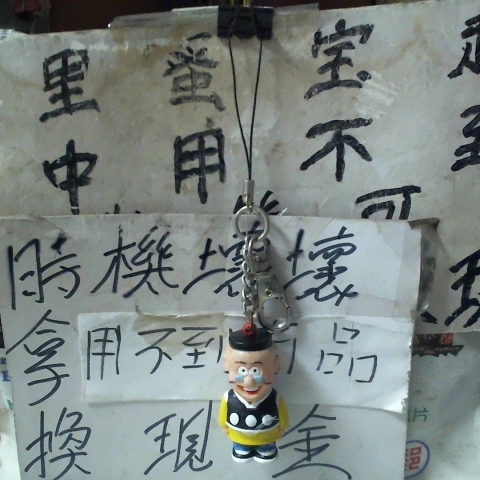 里 蛋 宝
中 用 不 到
可
時機壞壞
拿用不到 品
換現金